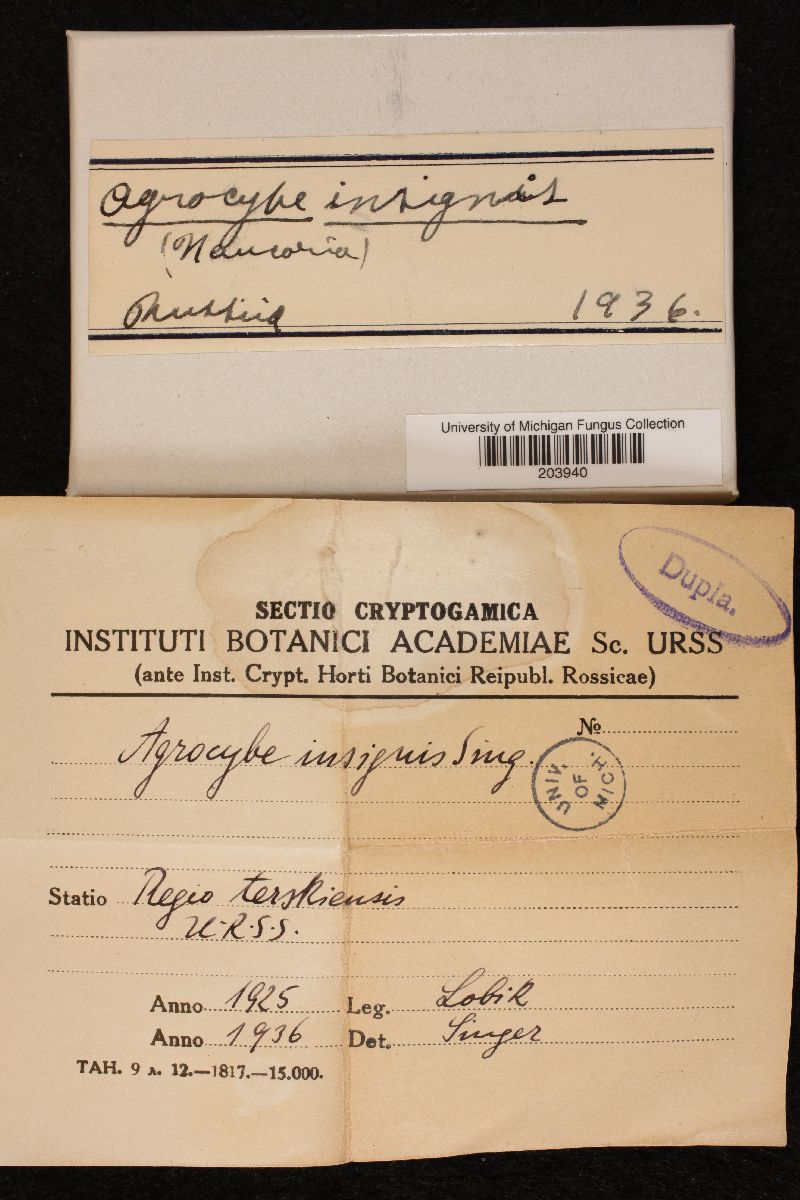 Agrocybe insignis
(Naucoria)
Russia 1936.
University of Michigan Fungus Collection
203940
Dupla.
SECTIO CRYPTOGAMICA
INSTITUTI BOTANICI ACADEMIAE Sc. URSS
(ante Inst. Crypt. Horti Botanici Reipubl. Rossicae)
№
Agrocybe insignis Sing.
UNIV. OF MICH.
Statio Regio terskiensis
U.R.S.S.
Anno 1925 Leg. Lobik
Anno 1936 Det. Singer
ТАН. 9 л. 12.—1817.—15.000.